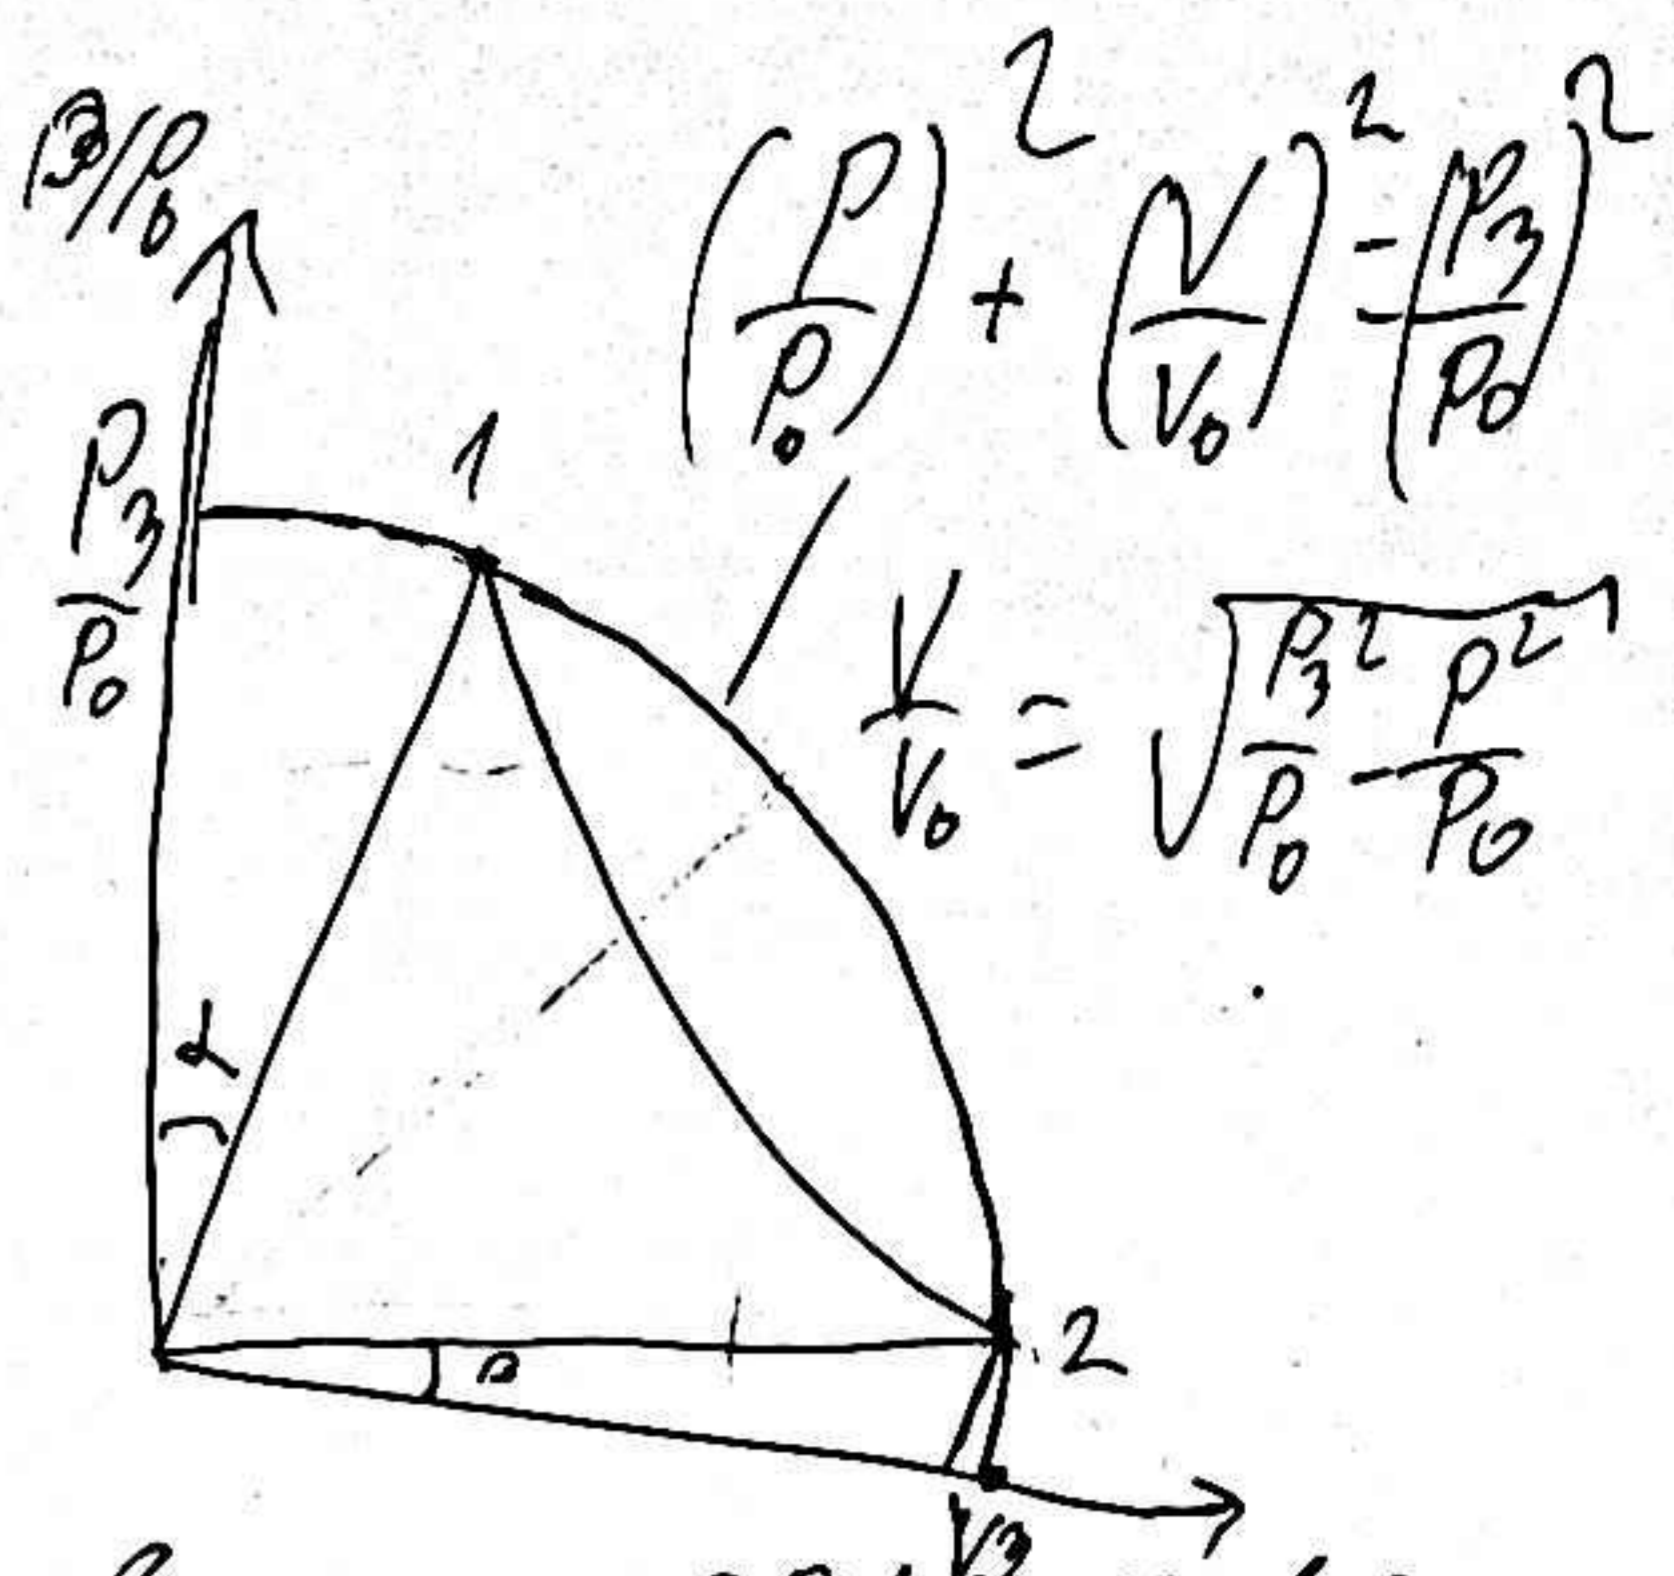 P/P₀
(P/P₀)² + (V/V₀)² = (P₃/P₀)²
P₃/P₀
1
V/V₀ = √(P₃²/P₀ - P²/P₀)
α
2
V₃